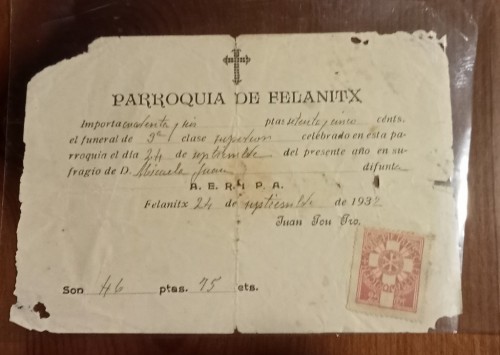 PARROQUIA DE FELANITX
Importa cuarenta y seis ptas setenta y cinco cénts.
el funeral de 3ª clase superior celebrado en esta pa-
rroquia el día 24 de septiembre del presente año en su-
fragio de D. Micaela difunta
A. E. R. I. P. A.
Felanitx 24 de septiembre de 1937
Juan Pou Pro.
Son 46 ptas. 75 cts.